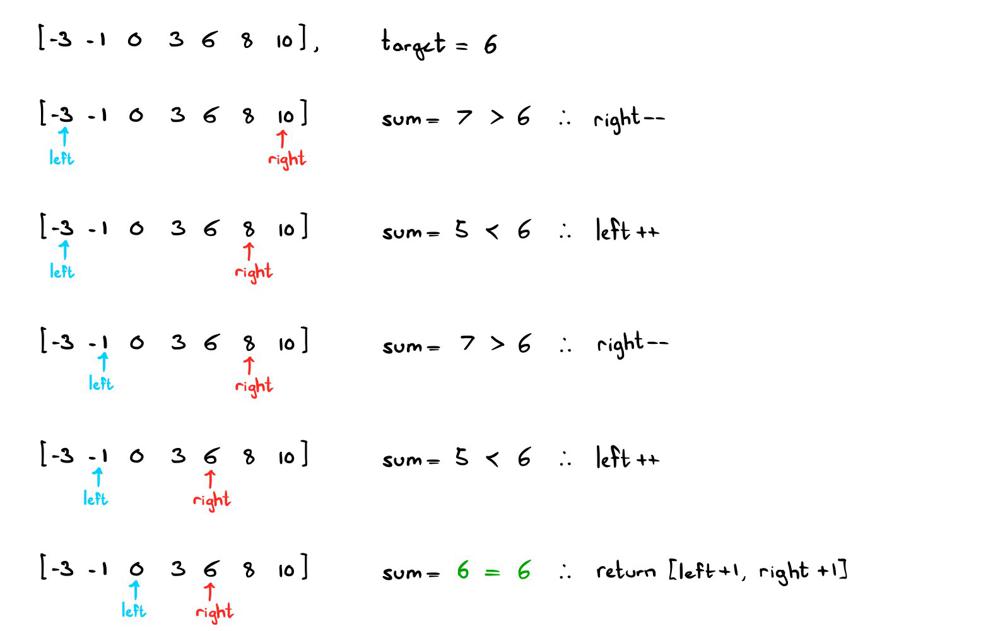 [-3 -1 0 3 6 8 10], target = 6
[-3 -1 0 3 6 8 10] sum = 7 > 6 ∴ right--
left right
[-3 -1 0 3 6 8 10] sum = 5 < 6 ∴ left ++
left right
[-3 -1 0 3 6 8 10] sum = 7 > 6 ∴ right--
left right
[-3 -1 0 3 6 8 10] sum = 5 < 6 ∴ left ++
left right
[-3 -1 0 3 6 8 10] sum = 6 = 6 ∴ return [left+1, right +1]
left right